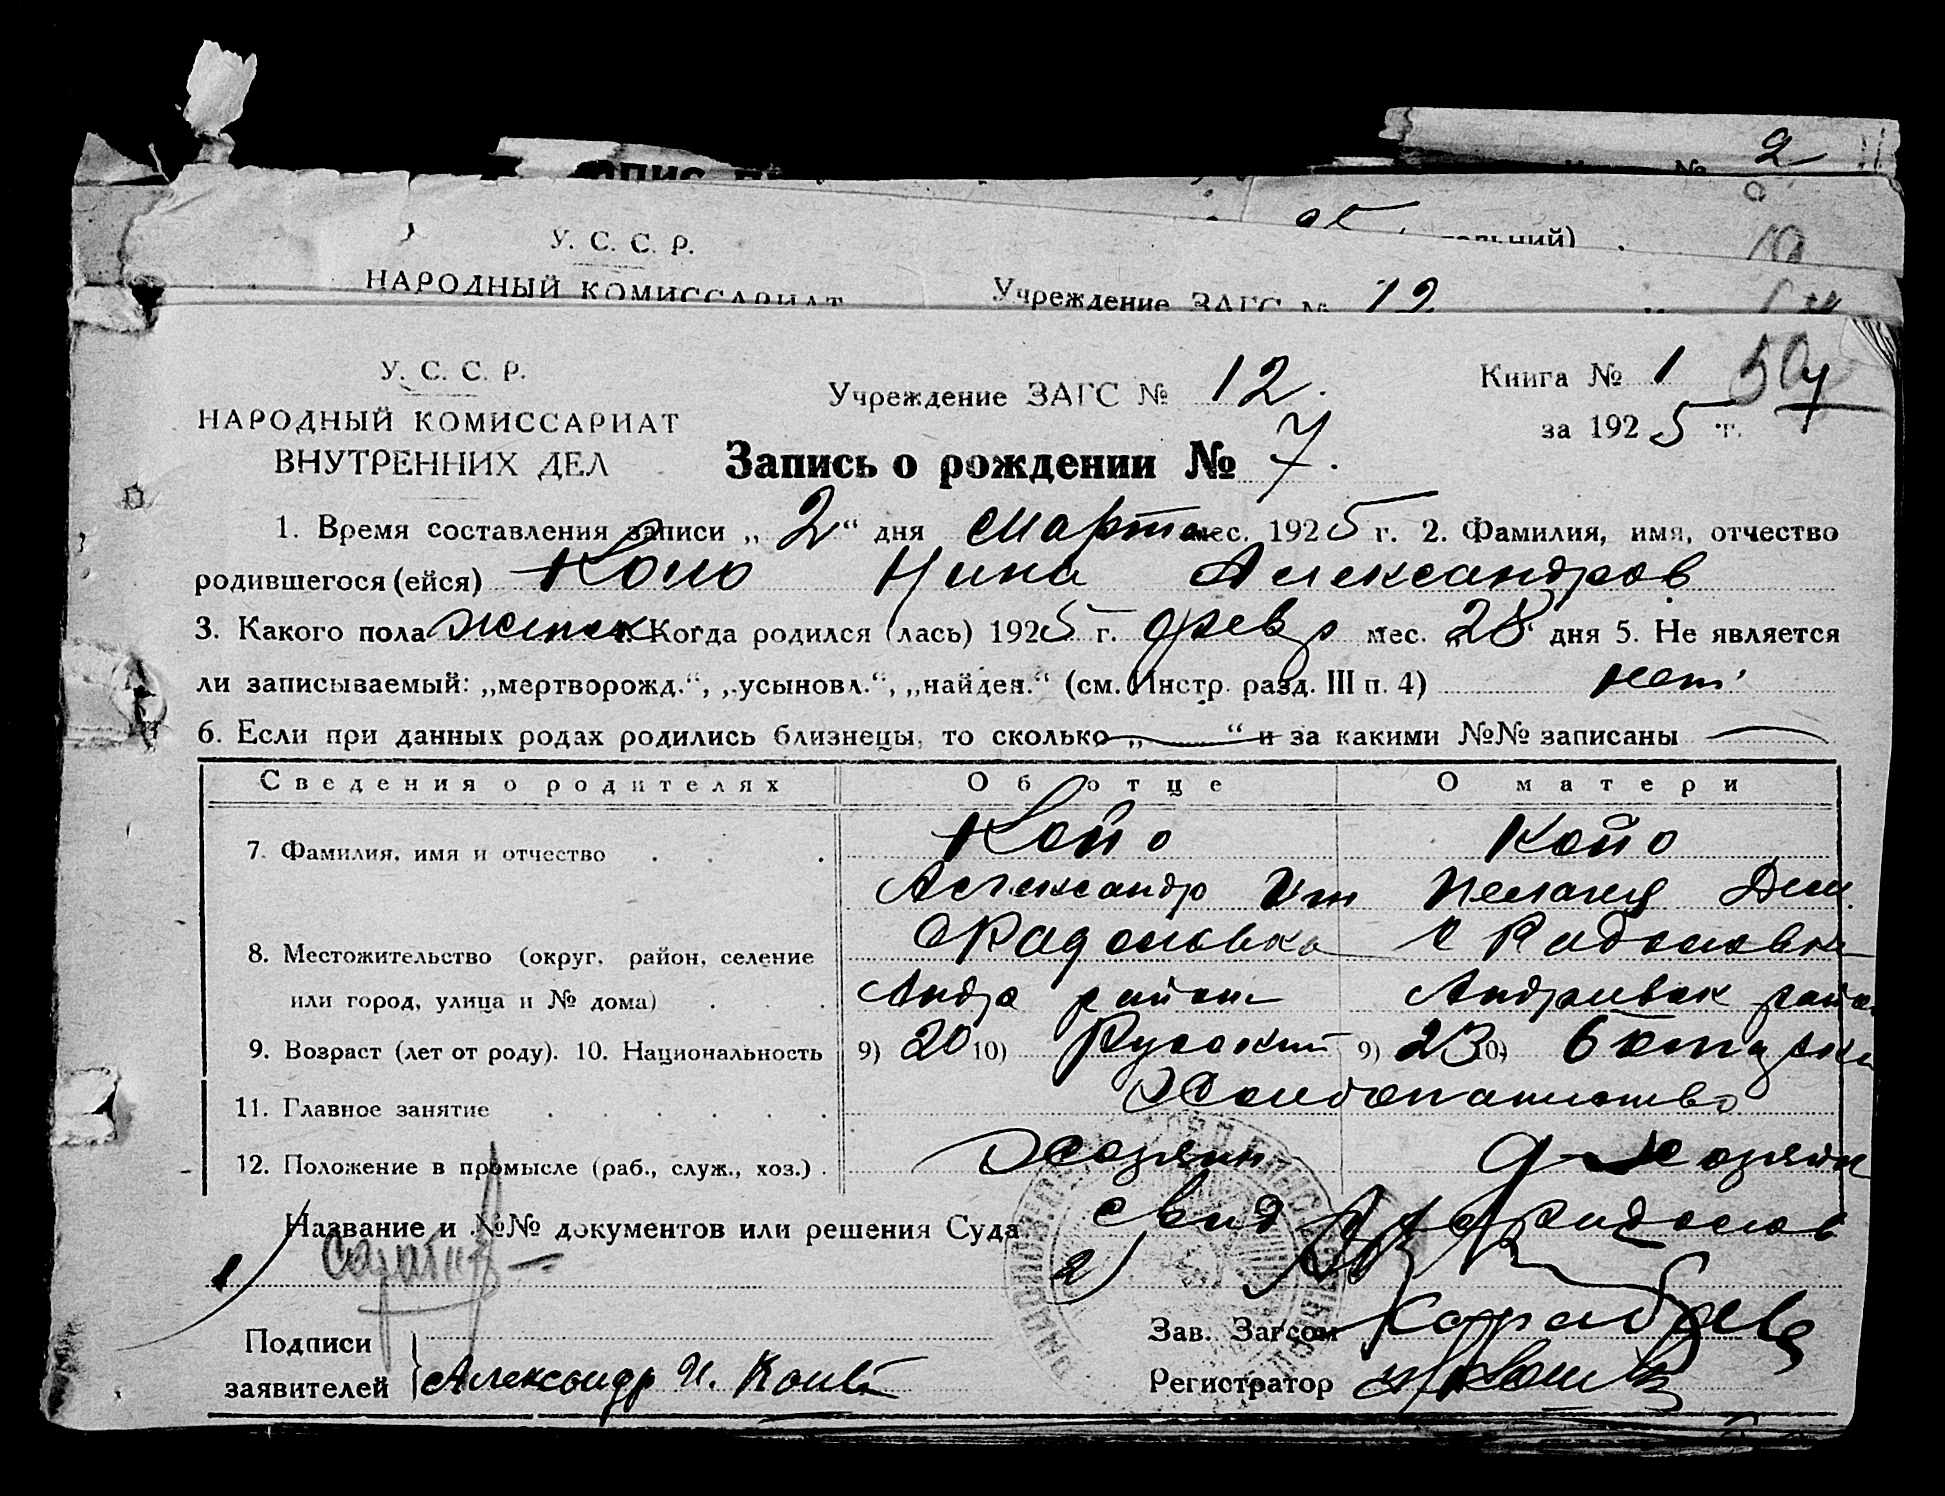 № 2
У. С. С. Р.
НАРОДНЫЙ КОМИССАРИАТ Учреждение ЗАГС № 12
У. С. С. Р.
Учреждение ЗАГС № 12. Книга № 1
НАРОДНЫЙ КОМИССАРИАТ за 1925 г.
ВНУТРЕННИХ ДЕЛ Запись о рождении № 7.
1. Время составления записи „2“ дня марта мес. 1925 г. 2. Фамилия, имя, отчество
родившегося (ейся) Нина Александров
3. Какого пола женск 4. Когда родился (лась) 1925 г. февр мес. „28“ дня 5. Не является
ли записываемый: „мертворожд.“, „усыновл.“, „найден.“ (см. Инстр. разд. III п. 4) нет
6. Если при данных родах родились близнецы, то сколько „ “ и за какими №№ записаны
Сведения о родителях Об отце О матери
7. Фамилия, имя и отчество Койо Койо
Александр Пелагея Дем.
8. Местожительство (округ, район, селение с Радоловка с Радоловка
или город, улица и № дома) Андр район Андривск район
9. Возраст (лет от роду). 10. Национальность 9) 20 10) Русский 9) 23 10)
11. Главное занятие Хлебопашество
12. Положение в промысле (раб., служ., хоз.) Хозяин
Название и №№ документов или решения Суда
1) 2)
Подписи Зав. Загсом
заявителей Александр И. Регистратор